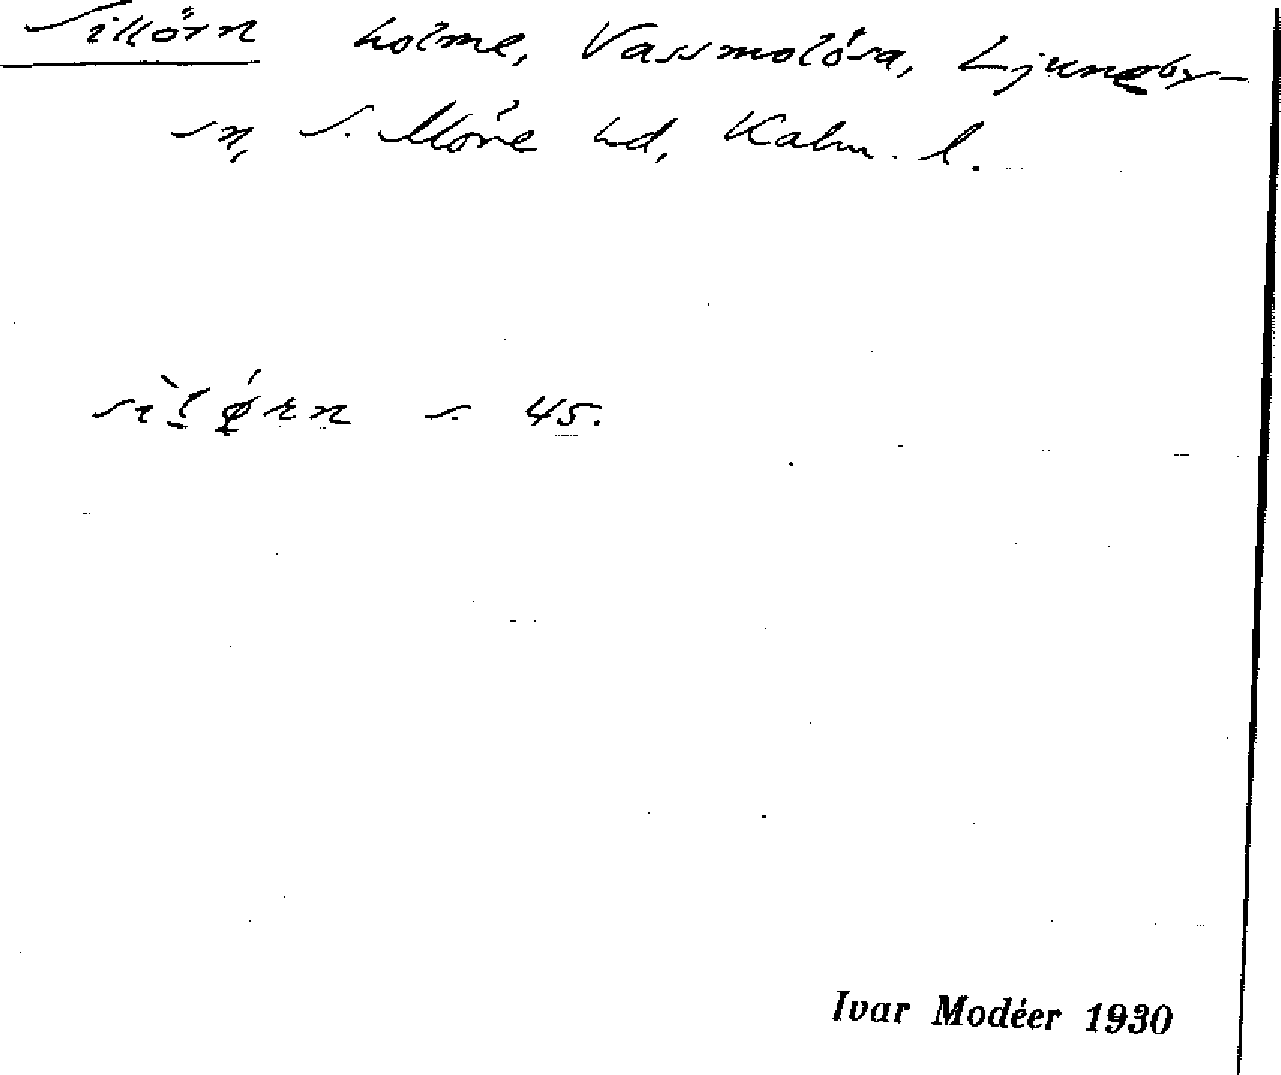 Sillörn holme, Vassmolösa, Ljungby-
sn, S. Möre hd, Kalm. l.
s. 45.
Ivar Modéer 1930